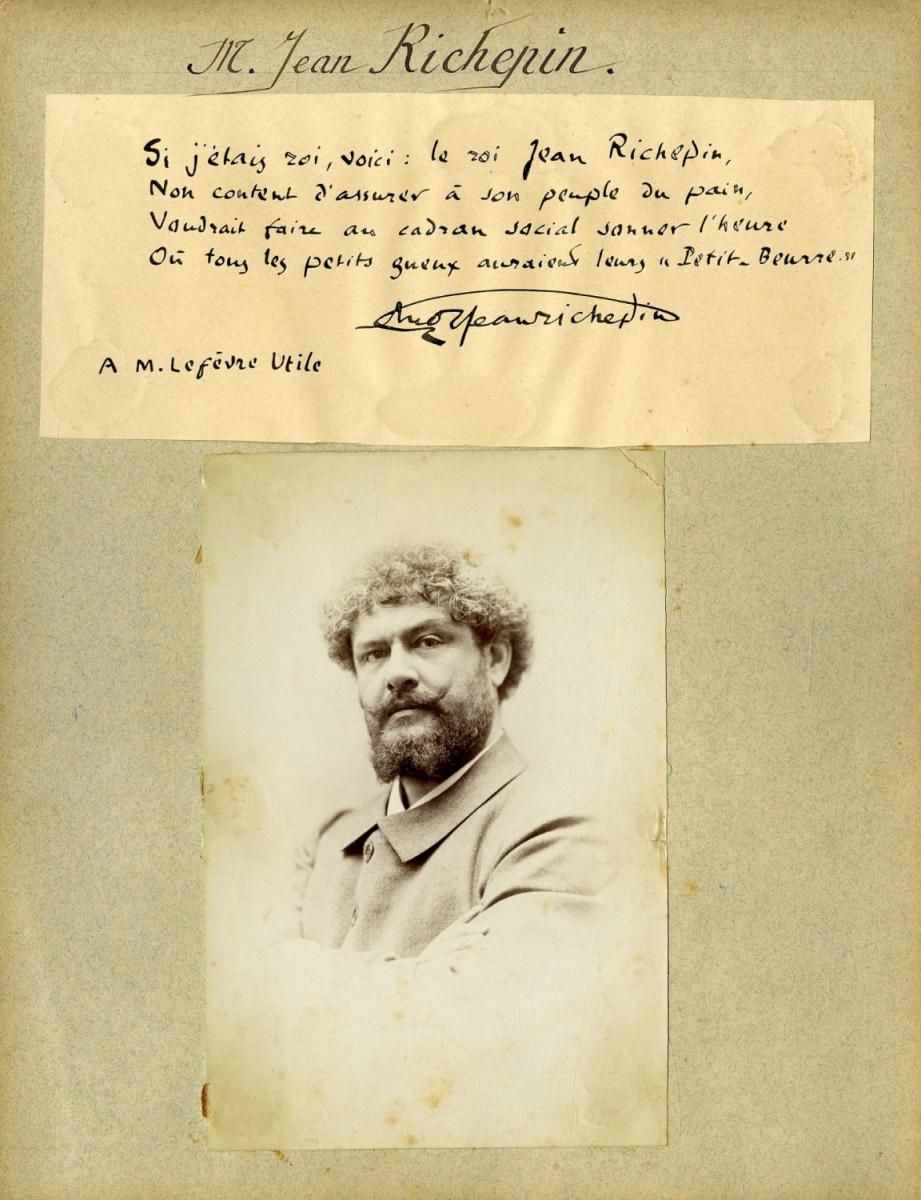 M. Jean Richepin.
Si j'étais roi, voici : le roi Jean Richepin,
Non content d'assurer à son peuple du pain,
Voudrait faire au cadran social sonner l'heure
Où tous les petits gueux auraient leurs « Petit-Beurre. »
Jean richepin
A M. Lefèvre Utile